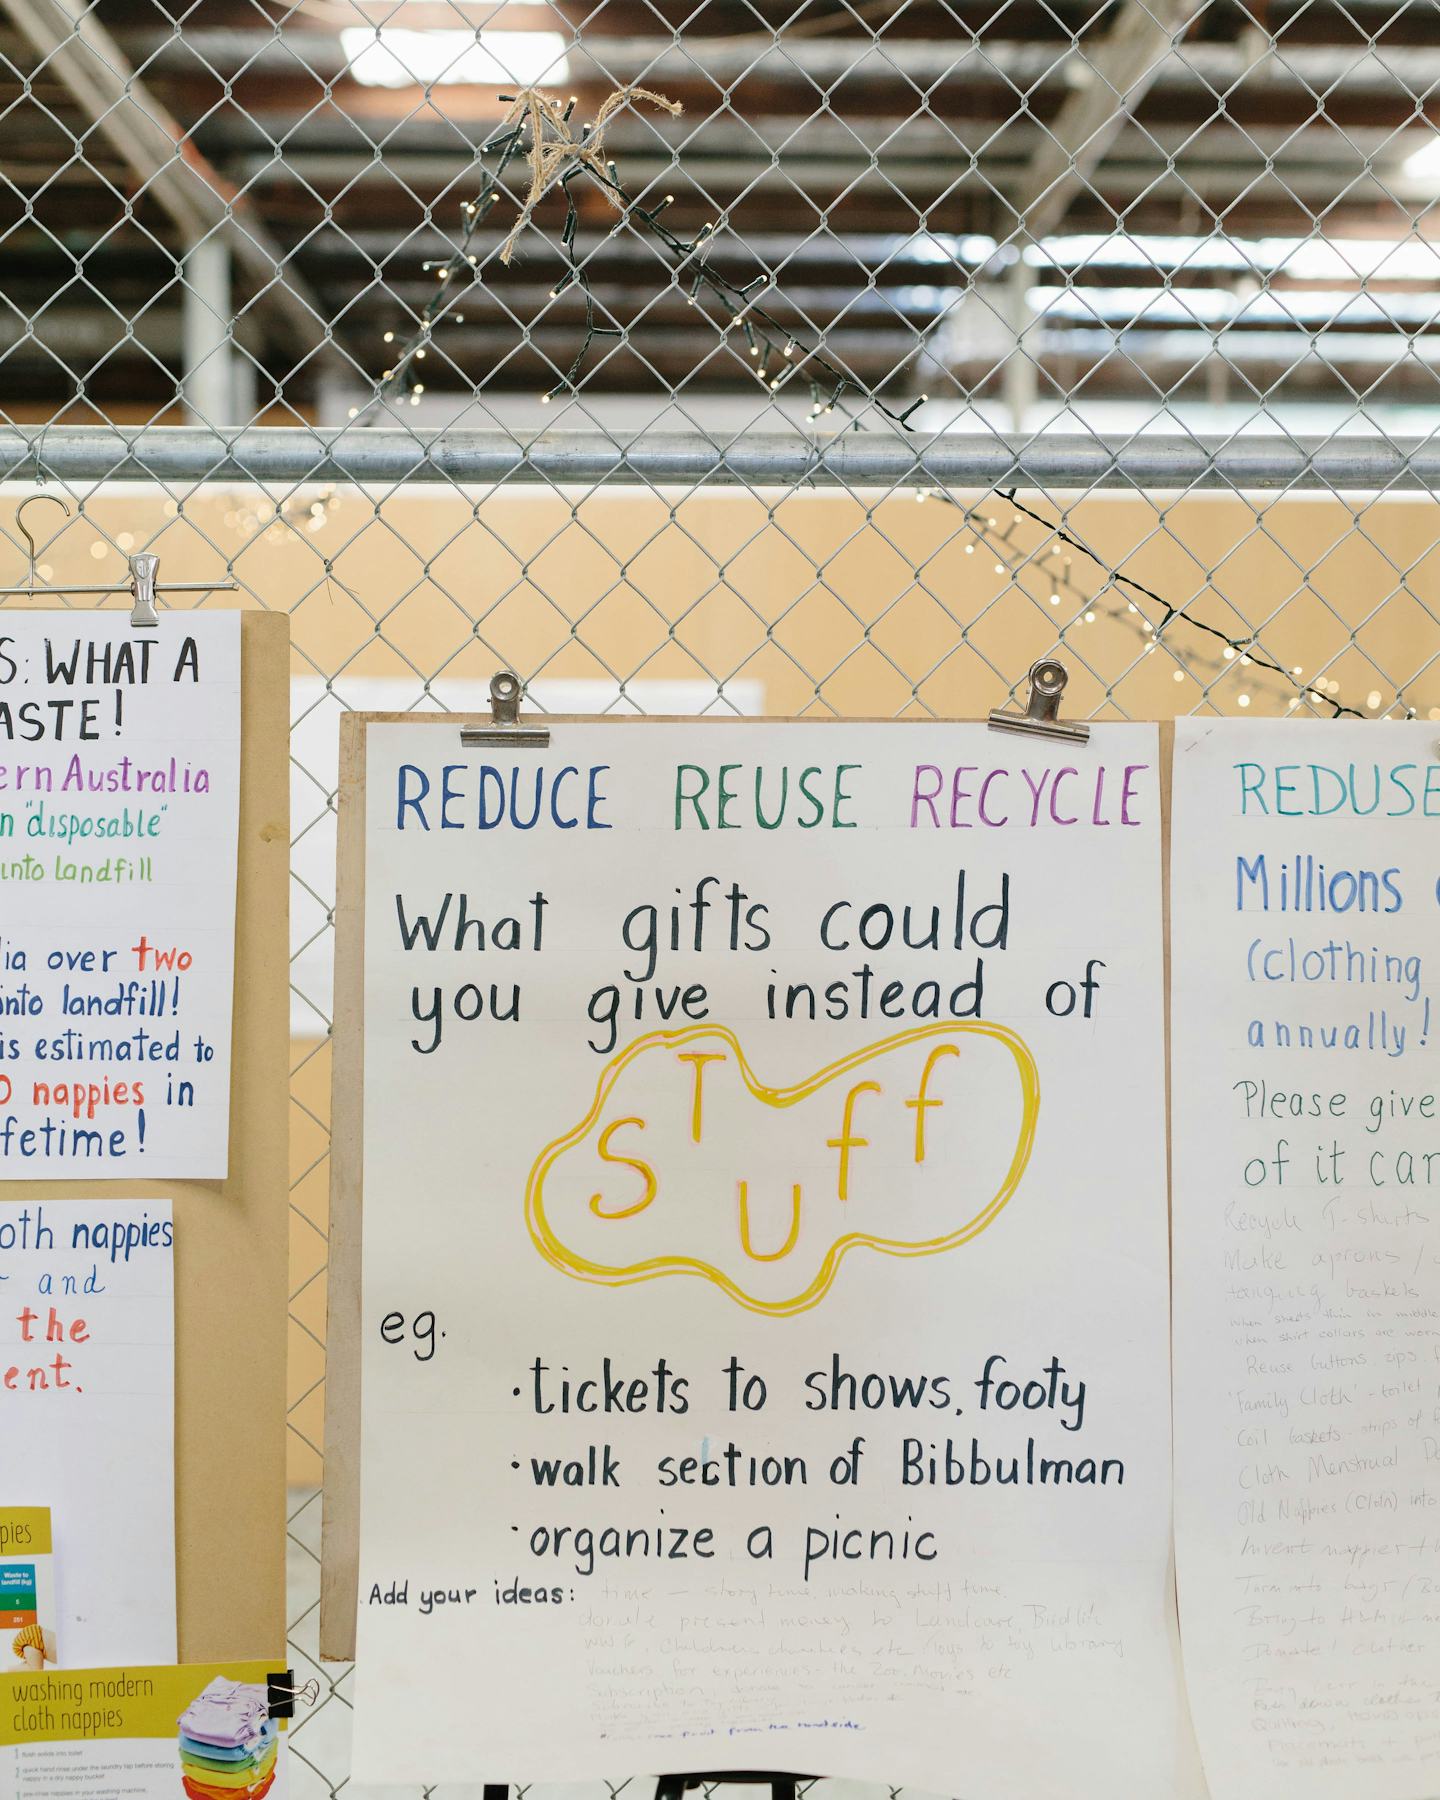 S: WHAT A
ASTE!
ern Australia
n "disposable"
into landfill
lia over two
into landfill!
is estimated to
0 nappies in
fetime!
oth nappies
and
the
ent.
pies
Waste to
landfill (kg)
washing modern
cloth nappies
flush solids into toilet
quick hand rinse under the laundry tap before storing
nappy in a dry nappy bucket
pre-rinse nappies in your washing machine,
REDUCE REUSE RECYCLE
What gifts could
you give instead of
STUff
eg.
· tickets to shows, footy
· walk section of Bibbulman
· organize a picnic
Add your ideas: time - story time, making stuff time.
donate present money to Landcare, Birdlife
WWF, Childrens charities etc toys to toy library
Vouchers for experiences - the Zoo, Movies etc
Subscription
fruit from the roadside
REDUSE
Millions
(clothing
annually!
Please give
of it car
Recycle T-shirts
Make aprons /
hanging baskets
when sheets thin in middle
when shirt collars are worn
Reuse buttons, zips,
'Family Cloth' - toilet
Coil baskets - strips of
Cloth Menstrual
Old Nappies (Cloth) into
Invent nappies
Turn into bags /
Bring to
Donate! clothes
Quilting,
Placemats +